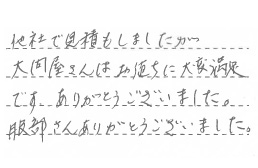 他社で見積もしましたが
大問屋さんはお値ちに大変満足
です。ありがとうございました。
服部さんありがとうございました。